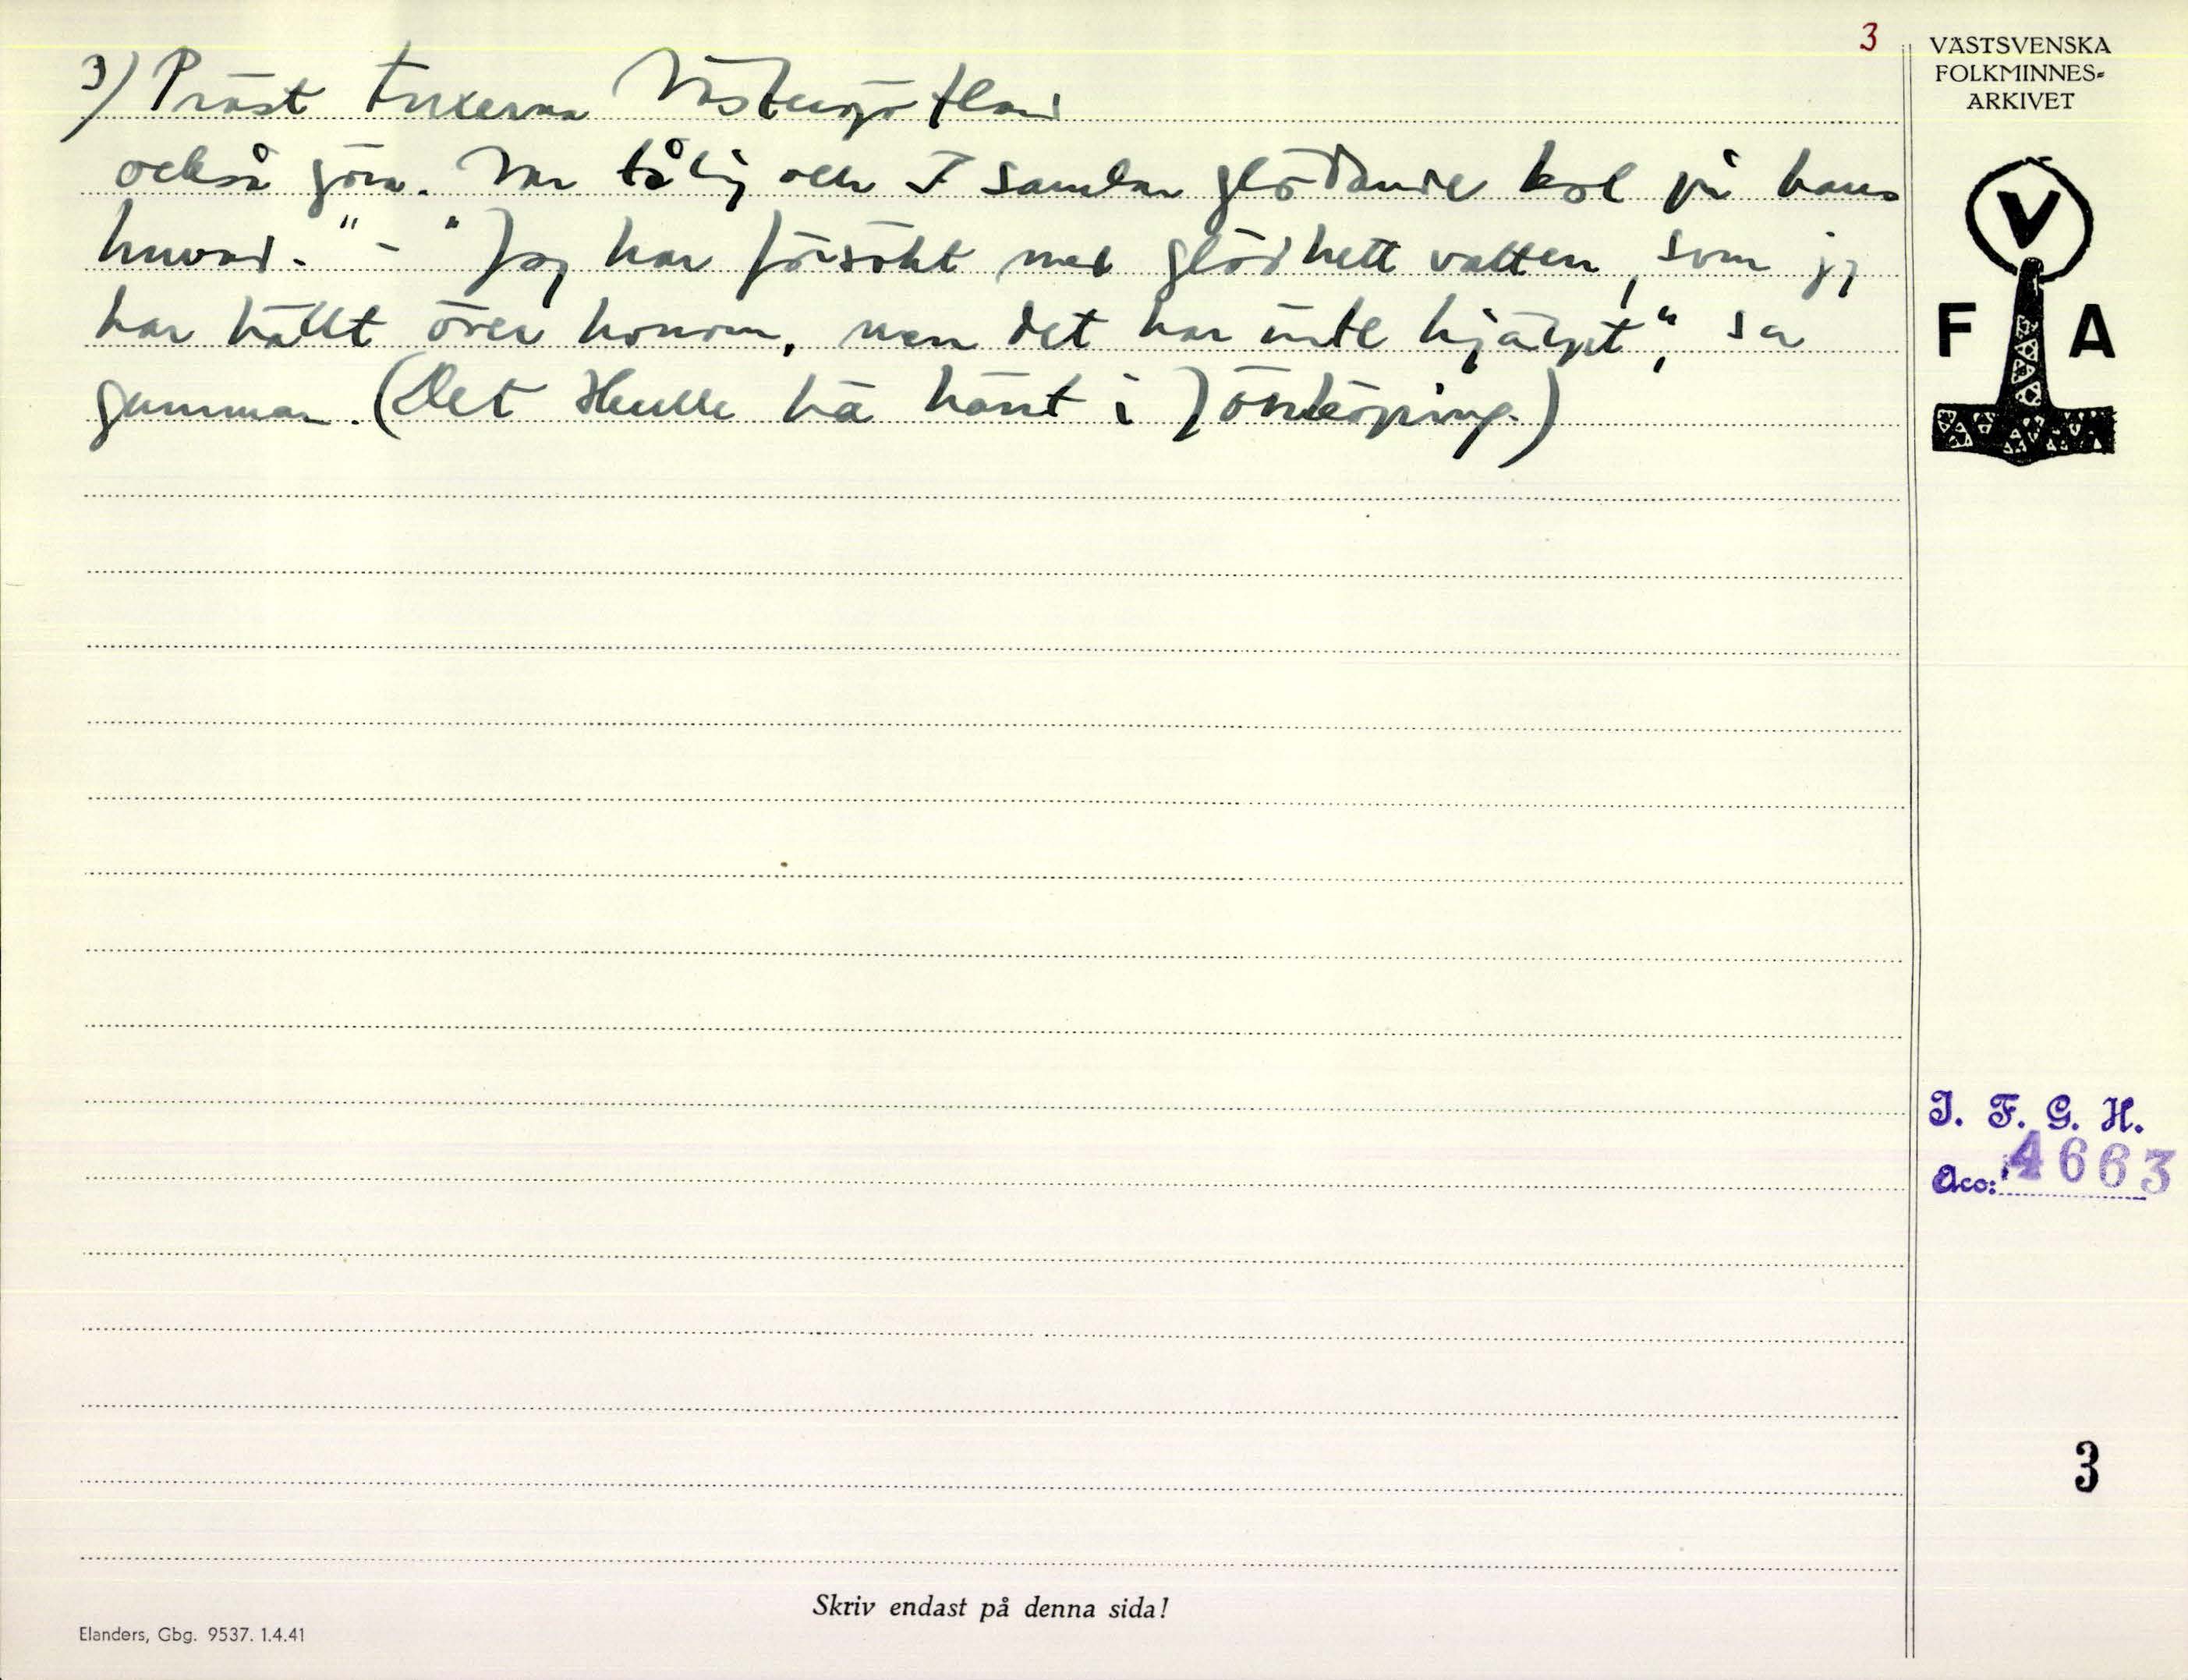 3
3) Präst Furxerna Västergötland
också göra. Var tålig och I samlar glödande kol på hans
huvud." - "Jag har försökt med glödhett vatten, som jag
har hällt över honom, men det har inte hjälpt", sa
gumman. (Det skulle ha hänt i Jönköping.)
VÄSTSVENSKA
FOLKMINNES-
ARKIVET
V
F A
I. F. G. H.
Acc: 4663
3
Skriv endast på denna sida!
Elanders, Gbg. 9537. 1.4.41